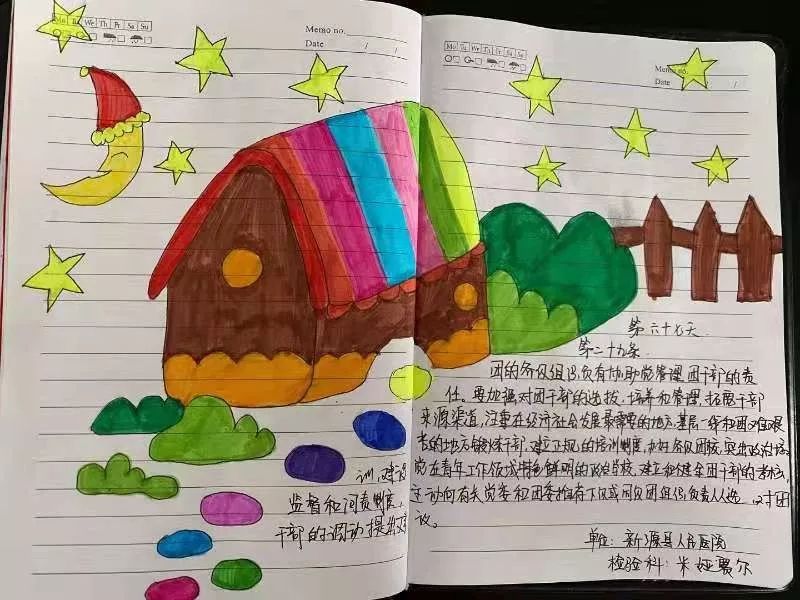 Mo Tu We Th Fr Sa Su
Memo no.
Date / /
训，建
监督和问责制度，
干部的调动提出
Mo Tu We Th Fr Sa Su
Memo no.
Date /
第六十七天
第二十九条
团的各级组织负有协助党管理团干部的责
任。要加强对团干部的选拔、培养和管理，拓宽干部
来源渠道，注重在经济社会发展最需要的地方、基层一线和困难艰
苦的地方锻炼干部，建立正规的培训制度，办好各级团校，突出政治
能在青年工作领域特色鲜明的政治学校，建立和健全团干部的考核、
主动向有关党委和团委推荐下级或同级团组织负责人人选，对团
议。
单位：新源县人民医院
检验科：米娅赛尔